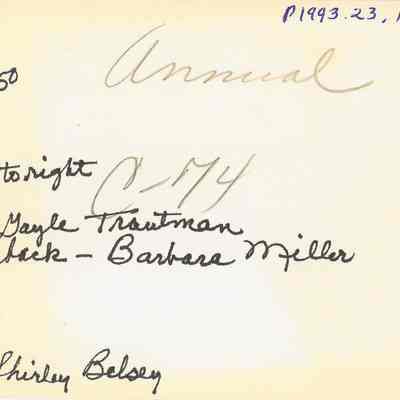 P1993.23,
Annual
50
to right
C-174
Gayle Trautman
back - Barbara Miller
Shirley Belsey